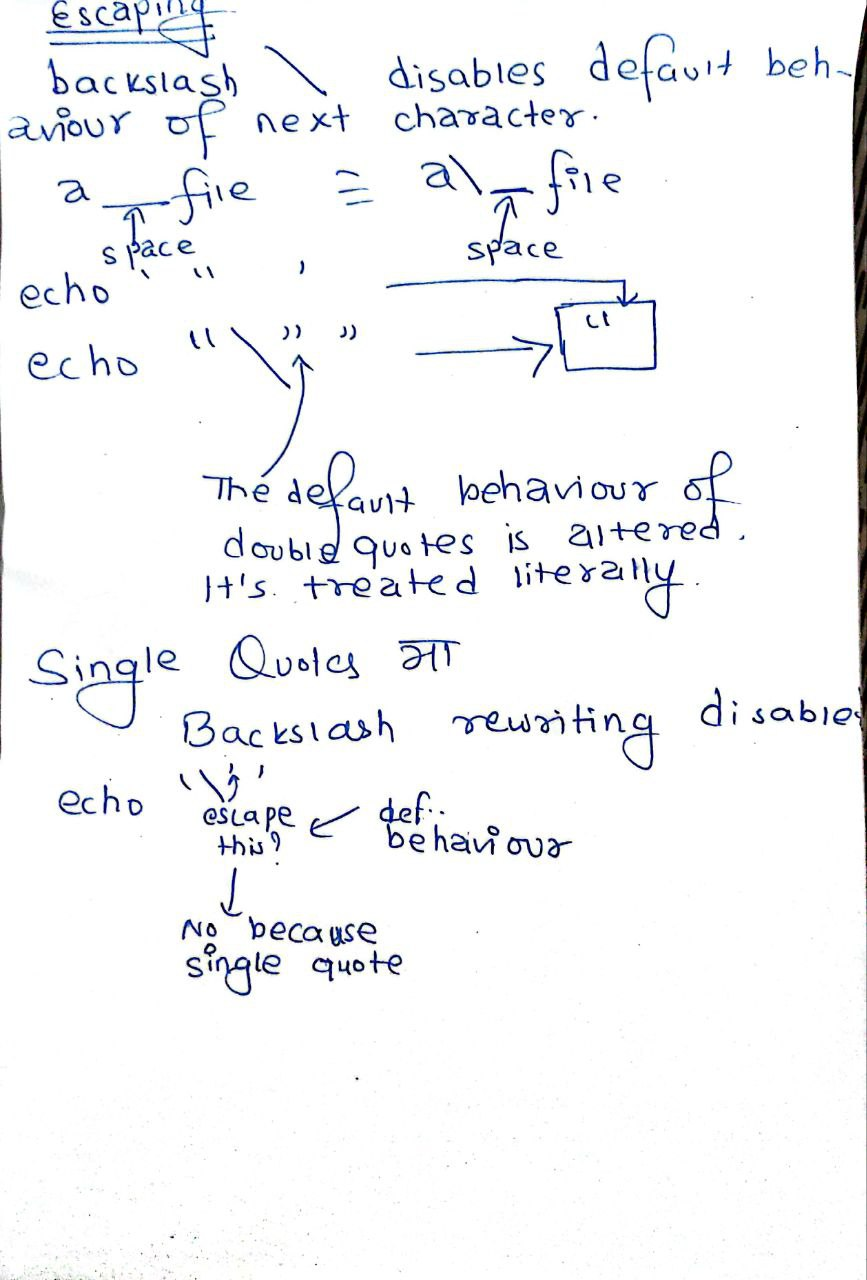 Escaping
backslash \ disables default beh-
aviour of next character.
a _ file = a\ _ file
space space
echo ' " '
echo " \" "
"
The default behaviour of
double quotes is altered.
It's treated literally.
Single Quotes मा
Backslash rewriting disables
echo '\''
escape def..
this? behaviour
No because
single quote